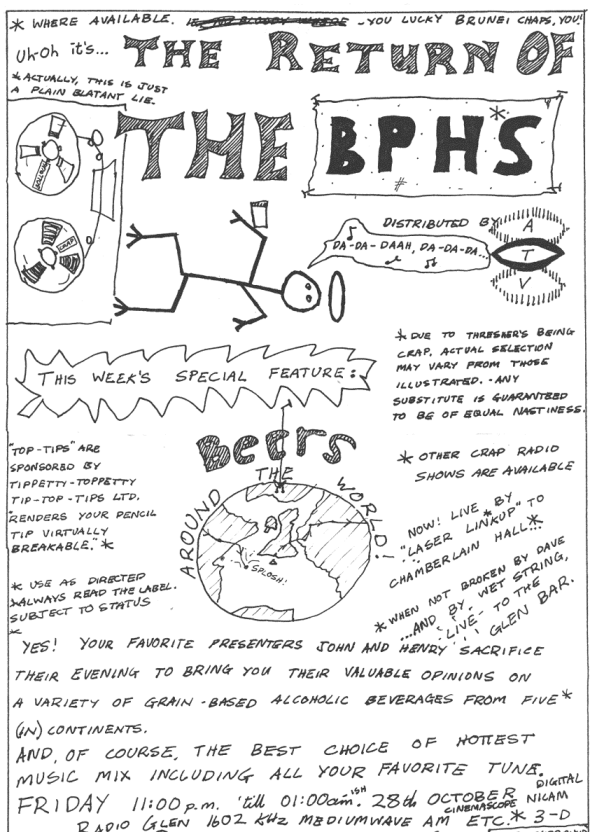 * WHERE AVAILABLE. - YOU LUCKY BRUNEI CHAPS, YOU!
Uh-Oh it's... THE RETURN OF
* ACTUALLY, THIS IS JUST
A PLAIN BLATANT LIE.
THE BPHS*
#
DISTRIBUTED BY
A
T
V
DA-DA-DAAH, DA-DA-DA...
* DUE TO THRESHER'S BEING
CRAP, ACTUAL SELECTION
MAY VARY FROM THOSE
ILLUSTRATED. - ANY
SUBSTITUTE IS GUARANTEED
TO BE OF EQUAL NASTINESS.
THIS WEEK'S SPECIAL FEATURE:
Beers
AROUND THE WORLD!
SPLOSH!
"TOP-TIPS" ARE
SPONSORED BY
TIPPETTY-TOPPETTY
TIP-TOP-TIPS LTD.
"RENDERS YOUR PENCIL
TIP VIRTUALLY
BREAKABLE." *
* USE AS DIRECTED
ALWAYS READ THE LABEL.
SUBJECT TO STATUS
*
* OTHER CRAP RADIO
SHOWS ARE AVAILABLE
NOW! LIVE BY
"LASER LINKUP"* TO
CHAMBERLAIN HALL...*
* WHEN NOT BROKEN BY DAVE
...AND, BY WET STRING,
'LIVE' TO THE
GLEN BAR.
YES! YOUR FAVORITE PRESENTERS JOHN AND HENRY SACRIFICE
THEIR EVENING TO BRING YOU THEIR VALUABLE OPINIONS ON
A VARIETY OF GRAIN-BASED ALCOHOLIC BEVERAGES FROM FIVE*
(IN) CONTINENTS.
AND, OF COURSE, THE BEST CHOICE OF HOTTEST
MUSIC MIX INCLUDING ALL YOUR FAVORITE TUNE.
FRIDAY 11:00 p.m. 'till 01:00am.ISH 28th OCTOBER DIGITAL
CINEMASCOPE NICAM
RADIO GLEN 1602 kHz MEDIUMWAVE AM ETC.* 3-D